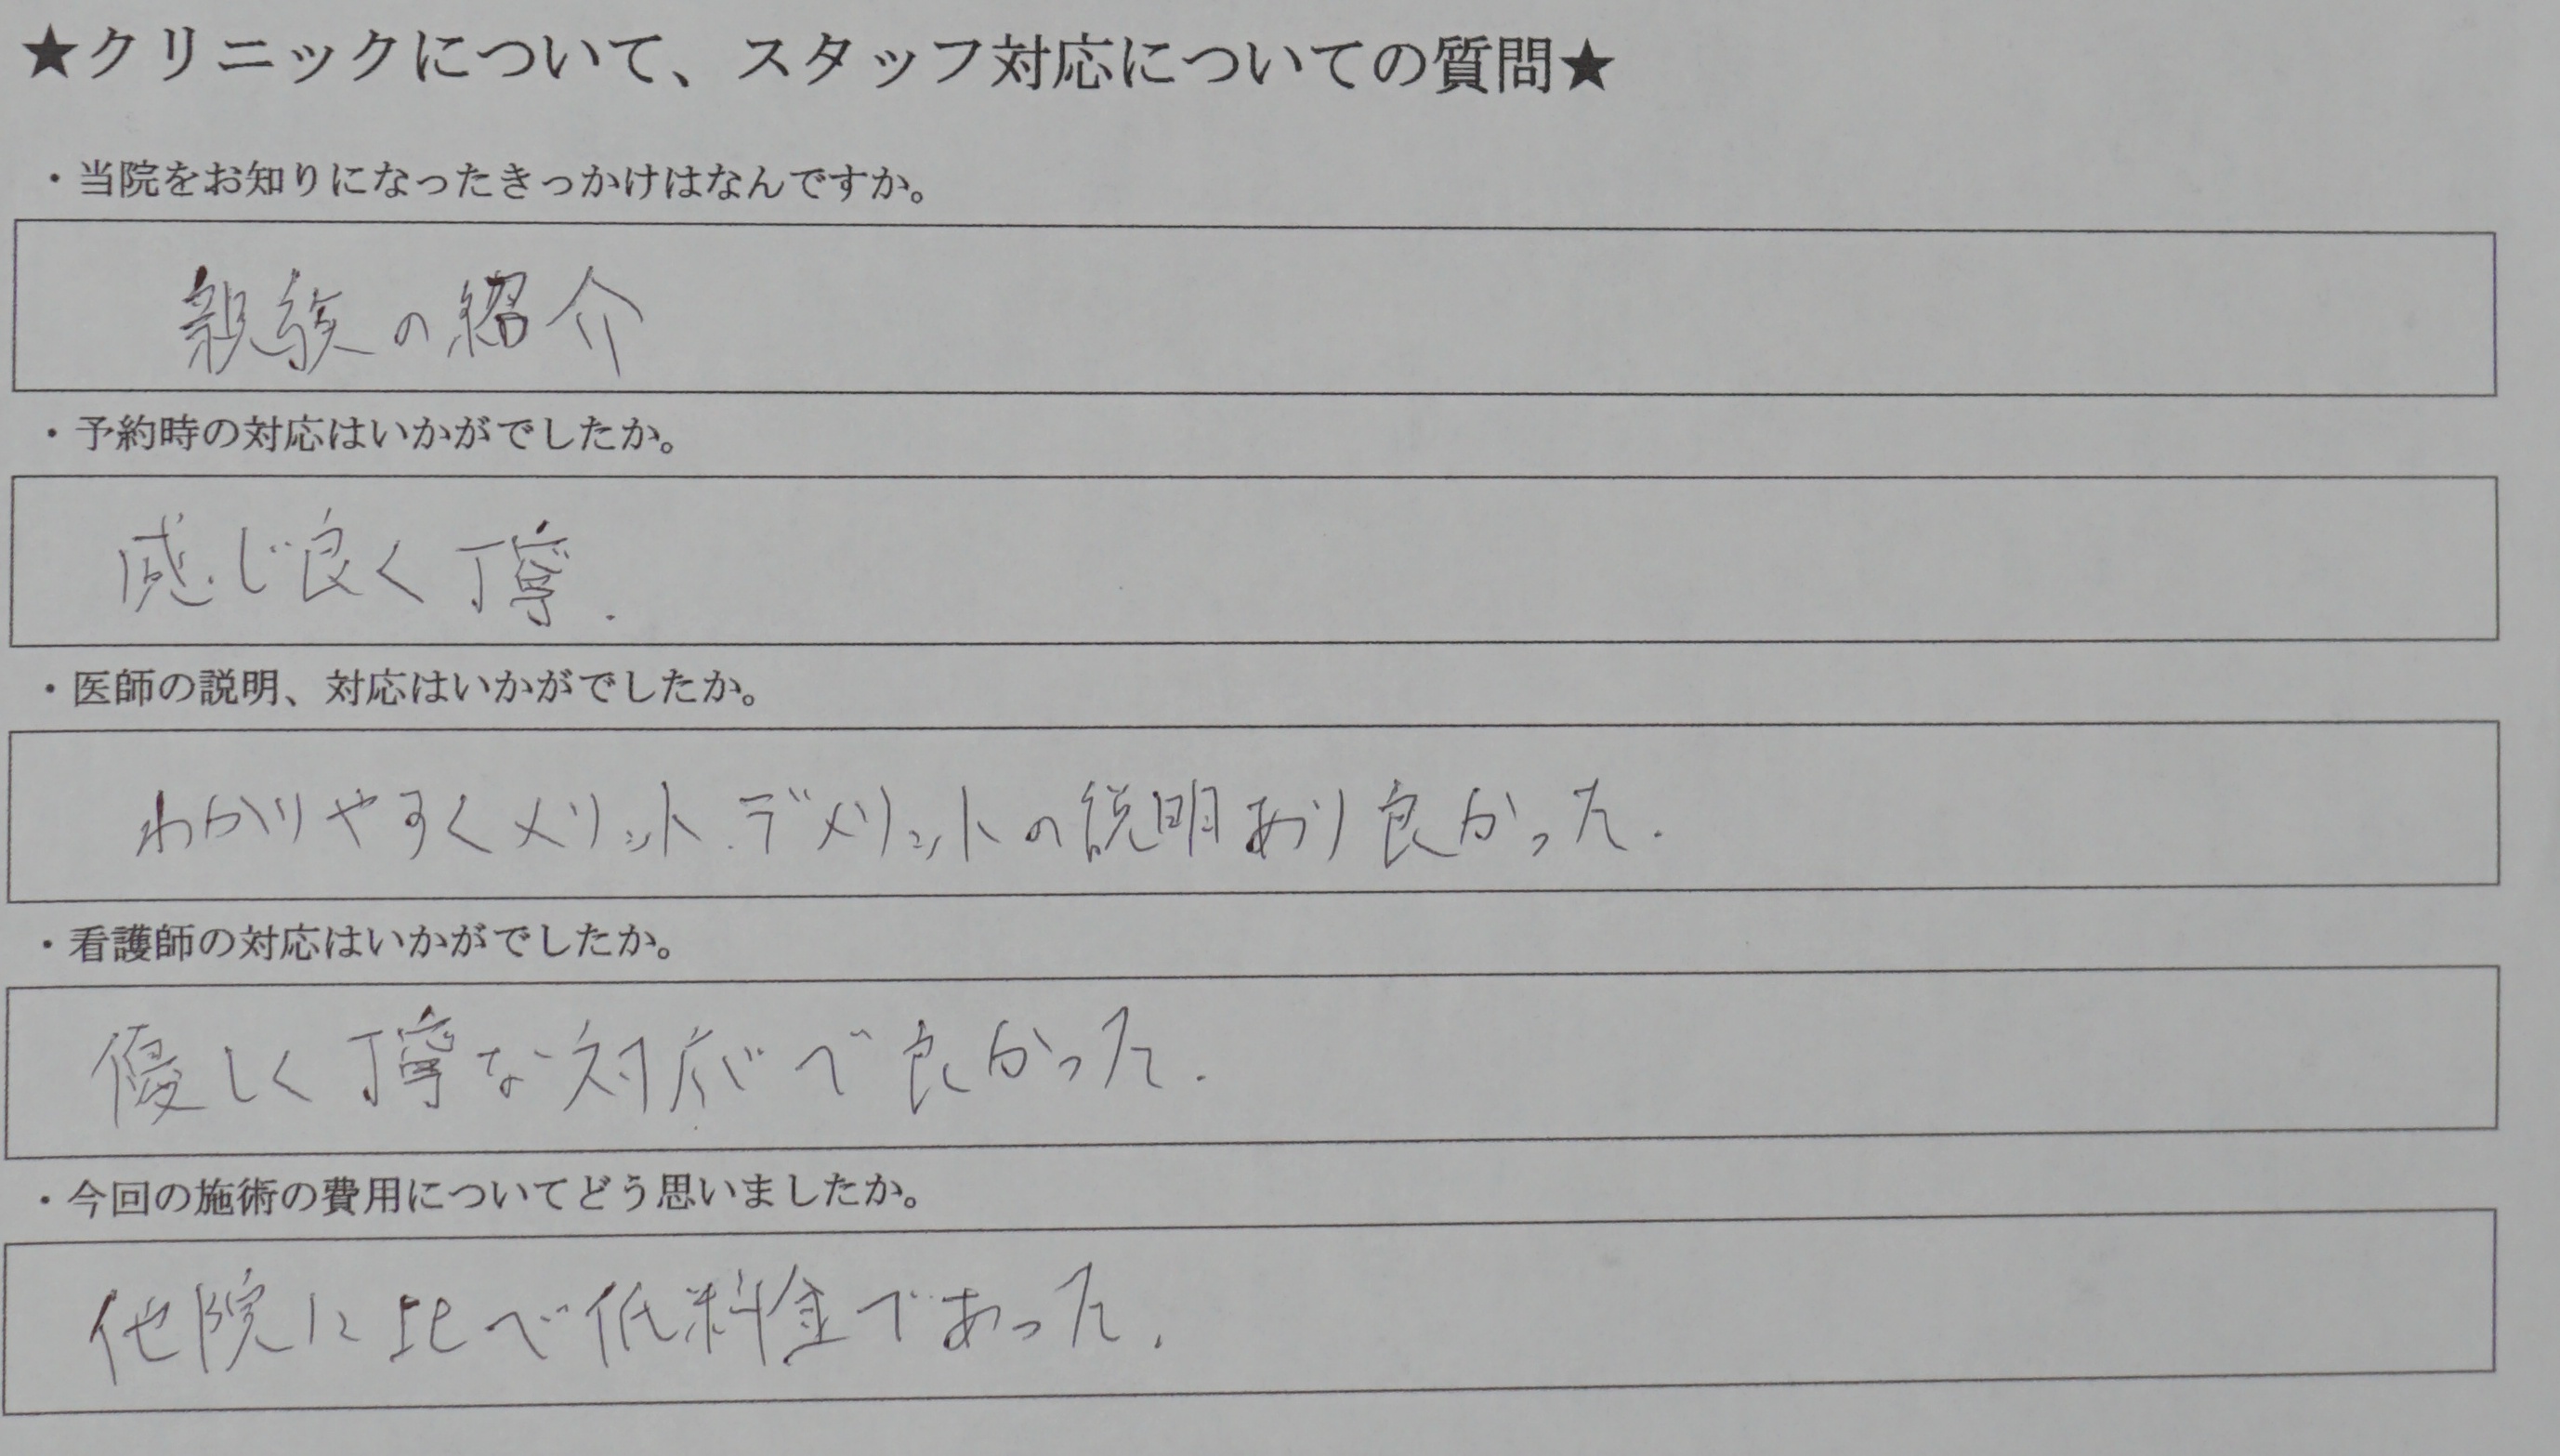 ★クリニックについて、スタッフ対応についての質問★
・当院をお知りになったきっかけはなんですか。
親族の紹介
・予約時の対応はいかがでしたか。
感じ良く丁寧.
・医師の説明、対応はいかがでしたか。
わかりやすくメリット.デメリットの説明あり良かった.
・看護師の対応はいかがでしたか。
優しく丁寧な対応で良かった.
・今回の施術の費用についてどう思いましたか。
他院に比べ低料金であった.